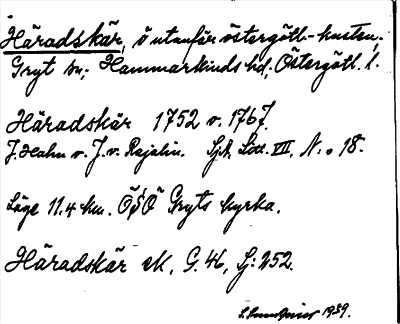 Häradskär, ö utanför östergötl.-kusten,
Gryt sn; Hammarkinds hd; Östergötl. l.
Häradskär 1752 o. 1767.
J. Hahn o. J. v. Rajalin. SjK, Litt. VII, N:o 18.
Läge 11.4 km. ÖSÖ Gryts kyrka.
Häradskär eK, G. 46, Sj: 252.
1939.